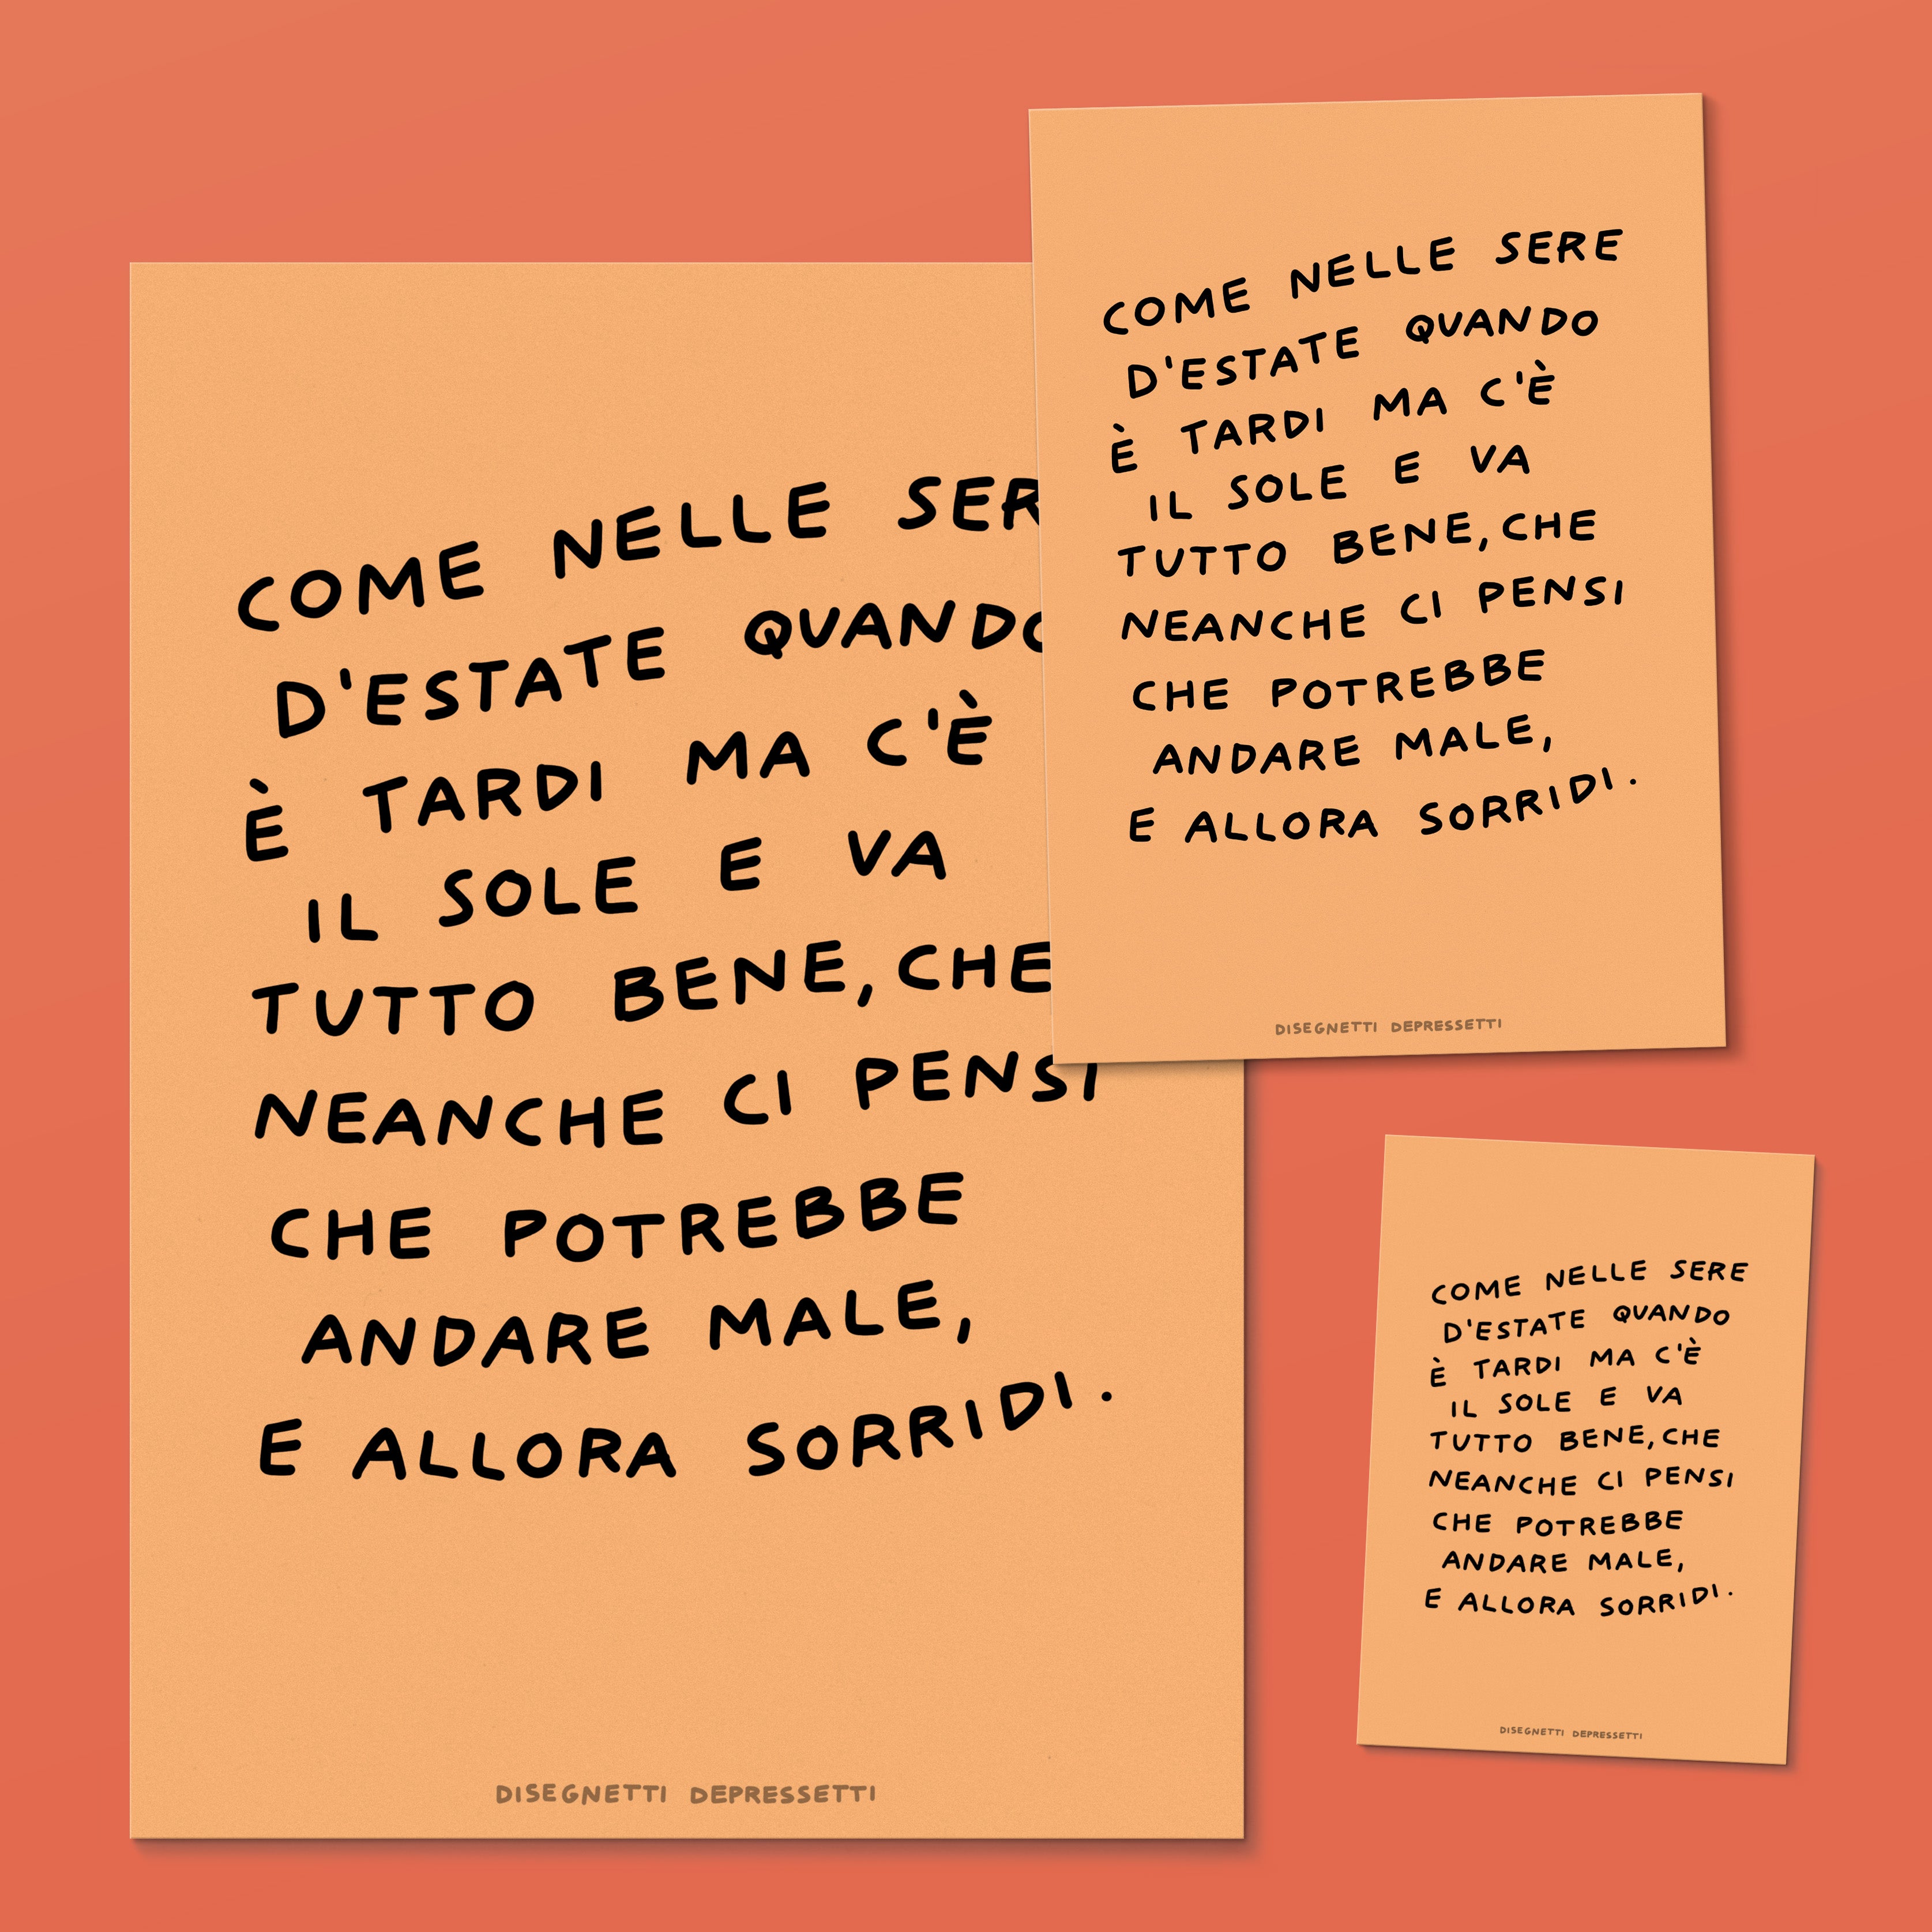 COME NELLE SER
D'ESTATE QUANDO
È TARDI MA C'È
IL SOLE E VA
TUTTO BENE, CHE
NEANCHE CI PENSI
CHE POTREBBE
ANDARE MALE,
E ALLORA SORRIDI.
DISEGNETTI DEPRESSETTI
COME NELLE SERE
D'ESTATE QUANDO
È TARDI MA C'È
IL SOLE E VA
TUTTO BENE, CHE
NEANCHE CI PENSI
CHE POTREBBE
ANDARE MALE,
E ALLORA SORRIDI.
DISEGNETTI DEPRESSETTI
COME NELLE SERE
D'ESTATE QUANDO
È TARDI MA C'È
IL SOLE E VA
TUTTO BENE, CHE
NEANCHE CI PENSI
CHE POTREBBE
ANDARE MALE,
E ALLORA SORRIDI.
DISEGNETTI DEPRESSETTI